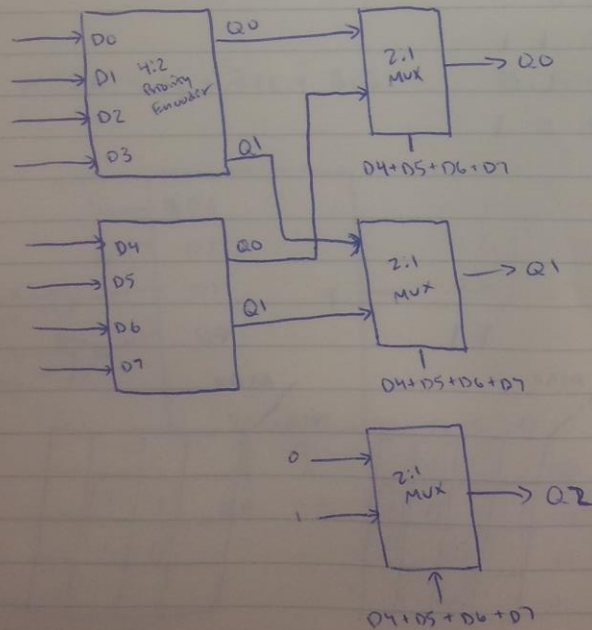 D0
D1
D2
D3
4:2
Priority
Encoder
Q0
Q1
2:1
MUX
Q0
D4+D5+D6+D7
D4
D5
D6
D7
Q0
Q1
2:1
MUX
Q1
D4+D5+D6+D7
0
1
2:1
MUX
Q2
D4+D5+D6+D7